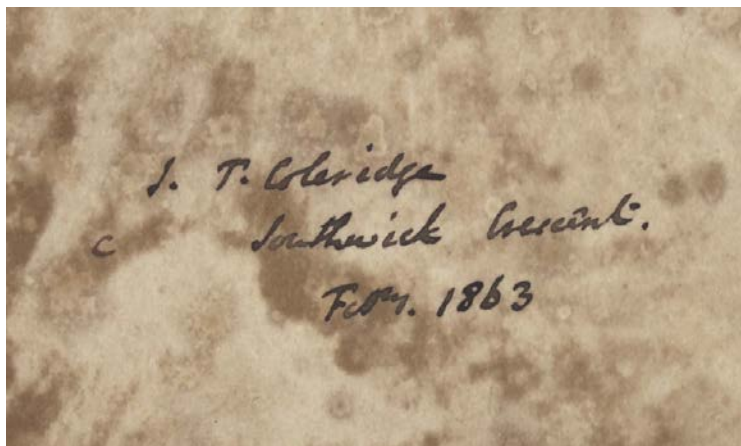 J. T. Coleridge
c Southwick Crescent.
Feby. 1863